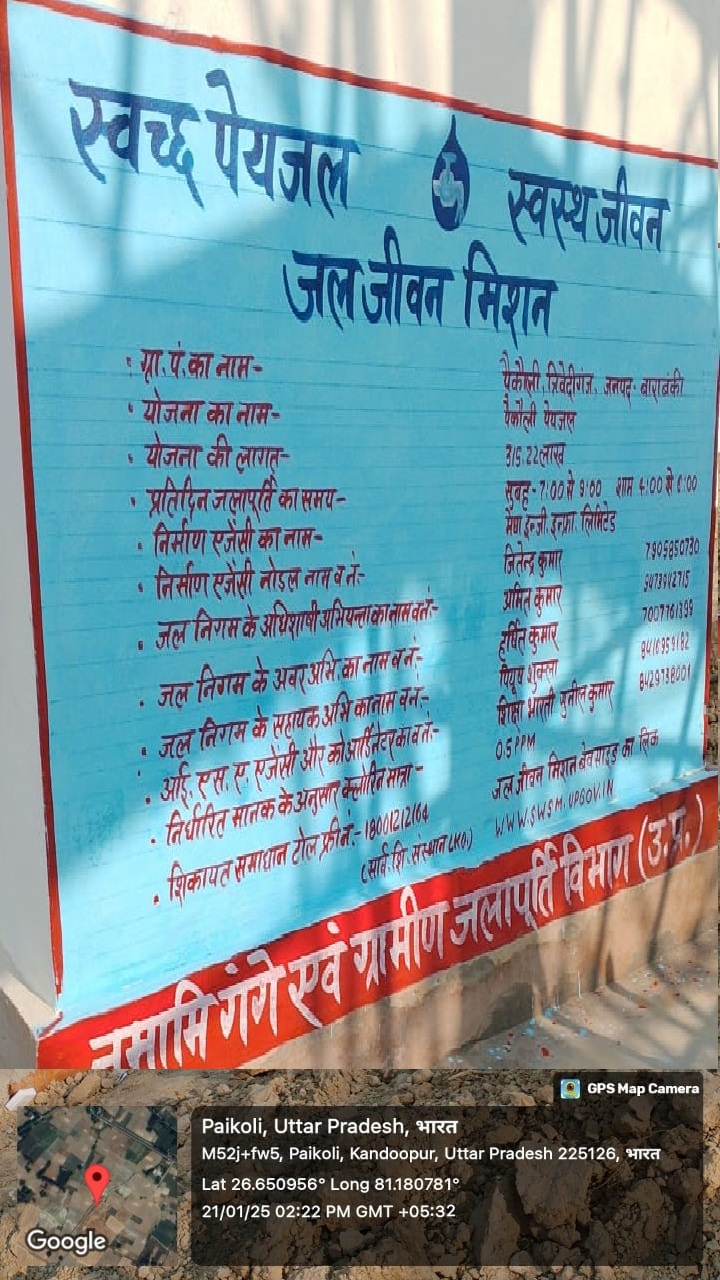 स्वच्छ पेयजल स्वस्थ जीवन
जल जीवन मिशन
ग्रा. पं. का नाम- पैकौली, त्रिवेदीगंज, जनपद- बाराबंकी
योजना का नाम- पैकौली पेयजल
योजना की लागत- 315.22 लाख
प्रतिदिन जलापूर्ति का समय- सुबह- 7:00 से 9:00 शाम 4:00 से 6:00
निर्माण एजेंसी का नाम- इन्जी. इन्फ्रा. लिमिटेड
निर्माण एजेंसी नोडल नाम व नं:- जितेन्द्र कुमार 7905850730
जल निगम के अधिशाषी अभियन्ता का नाम व नं:- अमित कुमार 9473942715
जल निगम के अवर अभि. का नाम व नं:- हर्षित कुमार
जल निगम के सहायक अभि का नाम व नं:- पियूष शुक्ला
आई. एस. ए. एजेंसी और कोआर्डिनेटर का व नं:- शिक्षा भारती सुनील कुमार
निर्धारित मानक के अनुसार क्लोरिन मात्रा- 0.5 PPM
शिकायत समाधान टोल फ्री नं:- 18001212164 जल जीवन मिशन बेवसाइड का लिंक
(सार्व. शि. संस्थान LKO.) WWW.SWSM.UPGOV.IN
नमामि गंगे एवं ग्रामीण जलापूर्ति विभाग (उ.प्र.)
GPS Map Camera
Paikoli, Uttar Pradesh, भारत
M52j+fw5, Paikoli, Kandoopur, Uttar Pradesh 225126, भारत
Lat 26.650956° Long 81.180781°
21/01/25 02:22 PM GMT +05:32
Google